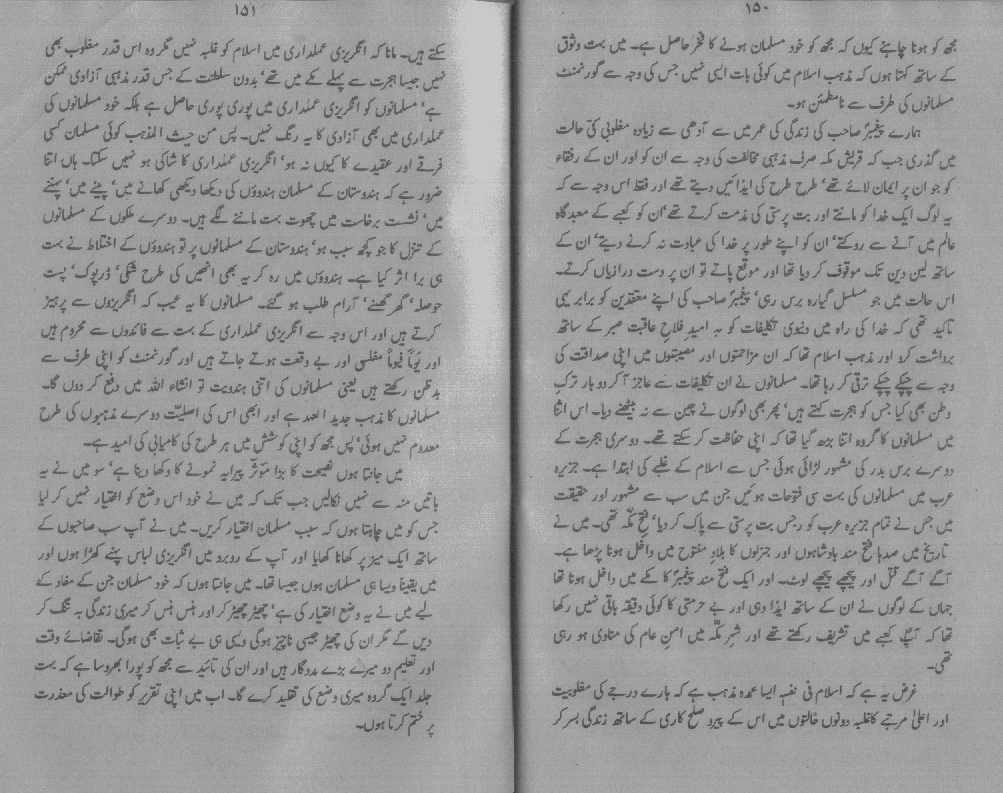 ۱۵۰
مجھ کو ہونا چاہئے کیوں کہ مجھ کو خود مسلمان ہونے کا فخر حاصل ہے۔ میں بہت وثوق
کے ساتھ کہتا ہوں کہ مذہب اسلام میں کوئی بات ایسی نہیں جس کی وجہ سے گورنمنٹ
مسلمانوں کی طرف سے نامطمئن ہو۔
ہمارے پیغمبرؐ صاحب کی زندگی کی عمر میں سے آدھی سے زیادہ مغلوبی کی حالت
میں گذری جب کہ قریش مکہ صرف مذہبی مخالفت کی وجہ سے ان کو اور ان کے رفقاء
کو جو ان پر ایمان لائے تھے‘ طرح طرح کی ایذائیں دیتے تھے اور فقط اس وجہ سے کہ
یہ لوگ ایک خدا کو مانتے اور بت پرستی کی مذمت کرتے تھے‘ ان کو کعبے کے معبدگاہ
عالم میں آنے سے روکتے‘ ان کو اپنے طور پر خدا کی عبادت نہ کرنے دیتے‘ ان کے
ساتھ لین دین تک موقوف کر دیا تھا اور موقع پاتے تو ان پر دست درازیاں کرتے۔
اس حالت میں جو مسلسل گیارہ برس رہی‘ پیغمبرؐ صاحب کی اپنے معتقدین کو برابر یہی
تاکید تھی کہ خدا کی راہ میں دنیوی تکلیفات کو بہ امید فلاح عاقبت صبر کے ساتھ
برداشت کرو اور مذہب اسلام تھا کہ ان مزاحمتوں اور مصیبتوں میں اپنی صداقت کی
وجہ سے چپکے چپکے ترقی کر رہا تھا۔ مسلمانوں نے ان تکلیفات سے عاجز آ کر دو بار ترکِ
وطن بھی کیا جس کو ہجرت کہتے ہیں‘ پھر بھی لوگوں نے چین سے نہ بیٹھنے دیا۔ اس اثنا
میں مسلمانوں کا گروہ اتنا بڑھ گیا تھا کہ اپنی حفاظت کر سکتے تھے۔ دوسری ہجرت کے
دوسرے برس بدر کی مشہور لڑائی ہوئی جس سے اسلام کے غلبے کی ابتدا ہے۔ جزیرہ
عرب میں مسلمانوں کی بہت سی فتوحات ہوئیں جن میں سب سے مشہور اور حقیقت
میں جس نے تمام جزیرہ عرب کو رجس بت پرستی سے پاک کر دیا‘ فتح مکہ تھی۔ میں نے
تاریخ میں صدہا فتح مند بادشاہوں اور جنرلوں کا بلادِ مفتوح میں داخل ہونا پڑھا ہے۔
آگے آگے قتل اور پیچھے پیچھے لوٹ۔ اور ایک فتح مند پیغمبرؐ کا مکے میں داخل ہونا تھا
جہاں کے لوگوں نے ان کے ساتھ ایذا دہی اور بے حرمتی کا کوئی دقیقہ باقی نہیں رکھا
تھا کہ آپؐ کعبے میں تشریف رکھتے تھے اور شہر مکّہ میں امن عام کی منادی ہو رہی
تھی۔
غرض یہ ہے کہ اسلام فی نفسہٖ ایسا عمدہ مذہب ہے کہ ہارے درجے کی مغلوبیت
اور اعلیٰ مرتبے کا غلبہ دونوں حالتوں میں اس کے پیرو صلح کاری کے ساتھ زندگی بسر کر
۱۵۱
سکتے ہیں۔ مانا کہ انگریزی عملداری میں اسلام کو غلبہ نہیں مگر وہ اس قدر مغلوب بھی
نہیں جیسا ہجرت سے پہلے مکے میں تھے‘ بدون سلطنت کے جس قدر مذہبی آزادی ممکن
ہے‘ مسلمانوں کو انگریزی عملداری میں پوری پوری حاصل ہے بلکہ خود مسلمانوں کی
عملداری میں بھی آزادی کا یہ رنگ نہیں۔ پس من حیث المذہب کوئی مسلمان کسی
فرقے اور عقیدے کا کیوں نہ ہو‘ انگریزی عملداری کا شاکی ہو نہیں سکتا۔ ہاں اتنا
ضرور ہے کہ ہندوستان کے مسلمان ہندوؤں کی دیکھا دیکھی کھانے میں‘ پینے میں‘ پہننے
میں‘ نشست برخاست میں چھوت بہت ماننے لگے ہیں۔ دوسرے ملکوں کے مسلمانوں
کے تنزل کا جو کچھ سبب ہو‘ ہندوستان کے مسلمانوں پر تو ہندوؤں کے اختلاط نے بہت
ہی برا اثر کیا ہے۔ ہندوؤں میں رہ کر یہ بھی انھیں کی طرح شکی‘ ڈرپوک‘ پست
حوصلہ‘ گھر گھسنے‘ آرام طلب ہو گئے۔ مسلمانوں کا یہ عیب کہ انگریزوں سے پرہیز
کرتے ہیں اور اس وجہ سے انگریزی عملداری کے بہت سے فائدوں سے محروم ہیں
اور یوماً فیوماً مفلسی اور بے وقعت ہوتے جاتے ہیں اور گورنمنٹ کو اپنی طرف سے
بدظن رکھتے ہیں یعنی مسلمانوں کی اتنی ہندویت تو انشاء اللہ میں دفع کر دوں گا۔
مسلمانوں کا مذہب جدید العہد ہے اور ابھی اس کی اصلیّت دوسرے مذہبوں کی طرح
معدوم نہیں ہوئی‘ پس مجھ کو اپنی کوشش میں ہر طرح کی کامیابی کی امید ہے۔
میں جانتا ہوں نصیحت کا بڑا مؤثر پیرایہ نمونے کا دکھا دینا ہے‘ سو میں نے یہ
باتیں منہ سے نہیں نکالیں جب تک کہ میں نے خود اس وضع کو اختیار نہیں کر لیا
جس کو میں چاہتا ہوں کہ سب مسلمان اختیار کریں۔ میں نے آپ سب صاحبوں کے
ساتھ ایک میز پر کھانا کھایا اور آپ کے روبرو میں انگریزی لباس پہنے کھڑا ہوں اور
میں یقیناً ویسا ہی مسلمان ہوں جیسا تھا۔ میں جانتا ہوں کہ خود مسلمان جن کے مفاد کے
لیے میں نے یہ وضع اختیار کی ہے‘ چھیڑ چھیڑ کر اور ہنس ہنس کر میری زندگی بہ تنگ کر
دیں گے مگر ان کی چھیڑ جیسی ناچیز ہوگی ویسی ہی بے ثبات بھی ہوگی۔ تقاضائے وقت
اور تعلیم دو میرے بڑے مددگار ہیں اور ان کی تائید سے مجھ کو پورا بھروسا ہے کہ بہت
جلد ایک گروہ میری وضع کی تقلید کرے گا۔ اب میں اپنی تقریر کو طوالت کی معذرت
پر ختم کرتا ہوں۔